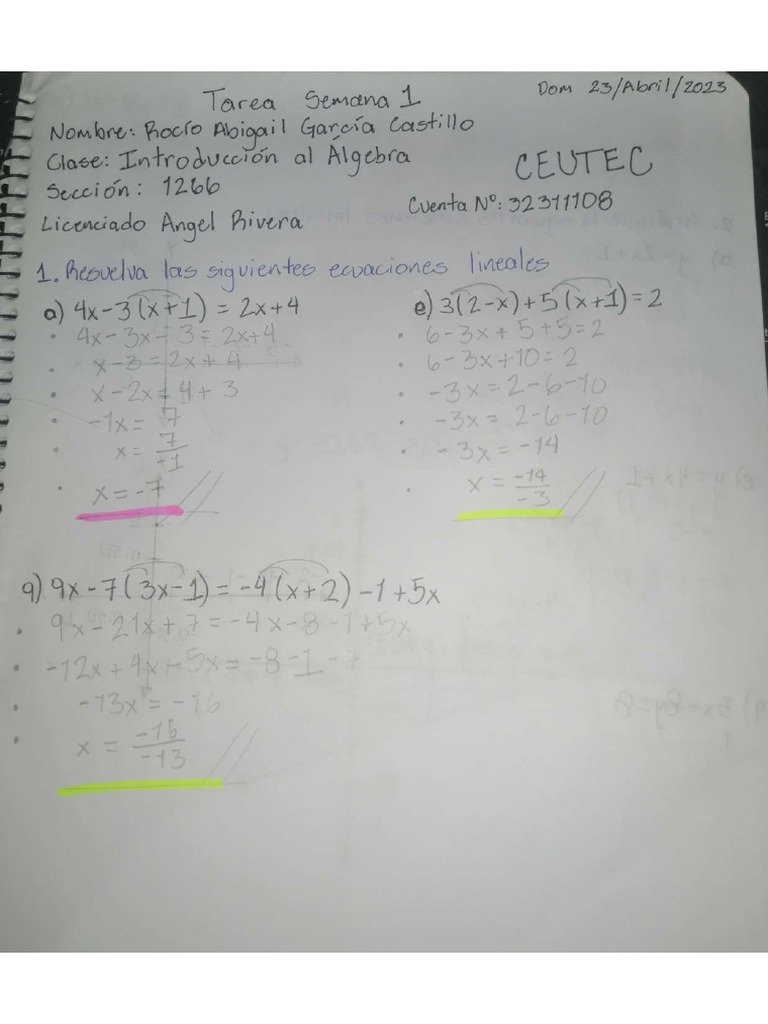 Dom 23/Abril/2023
Tarea Semana 1
Nombre: Rocío Abigail García Castillo
Clase: Introducción al Algebra
CEUTEC
Sección: 1266
Cuenta Nº: 32311108
Licenciado Angel Rivera
1. Resuelva las siguientes ecuaciones lineales
a) 4x-3(x+1) = 2x+4
4x-3x-3 = 2x+4
x-3 = 2x+4
x-2x = 4+3
-1x = 7
x = 7/-1
x = -7
e) 3(2-x)+5(x+1) = 2
6-3x+5+5=2
6-3x+10=2
-3x = 2-6-10
-3x = 2-6-10
-3x = -14
x = -14/-3
q) 9x-7(3x-1) = -4(x+2)-1+5x
9x-21x+7 = -4x-8-1+5x
-12x+4x-5x = -8-1-7
-13x = -16
x = -16/-13